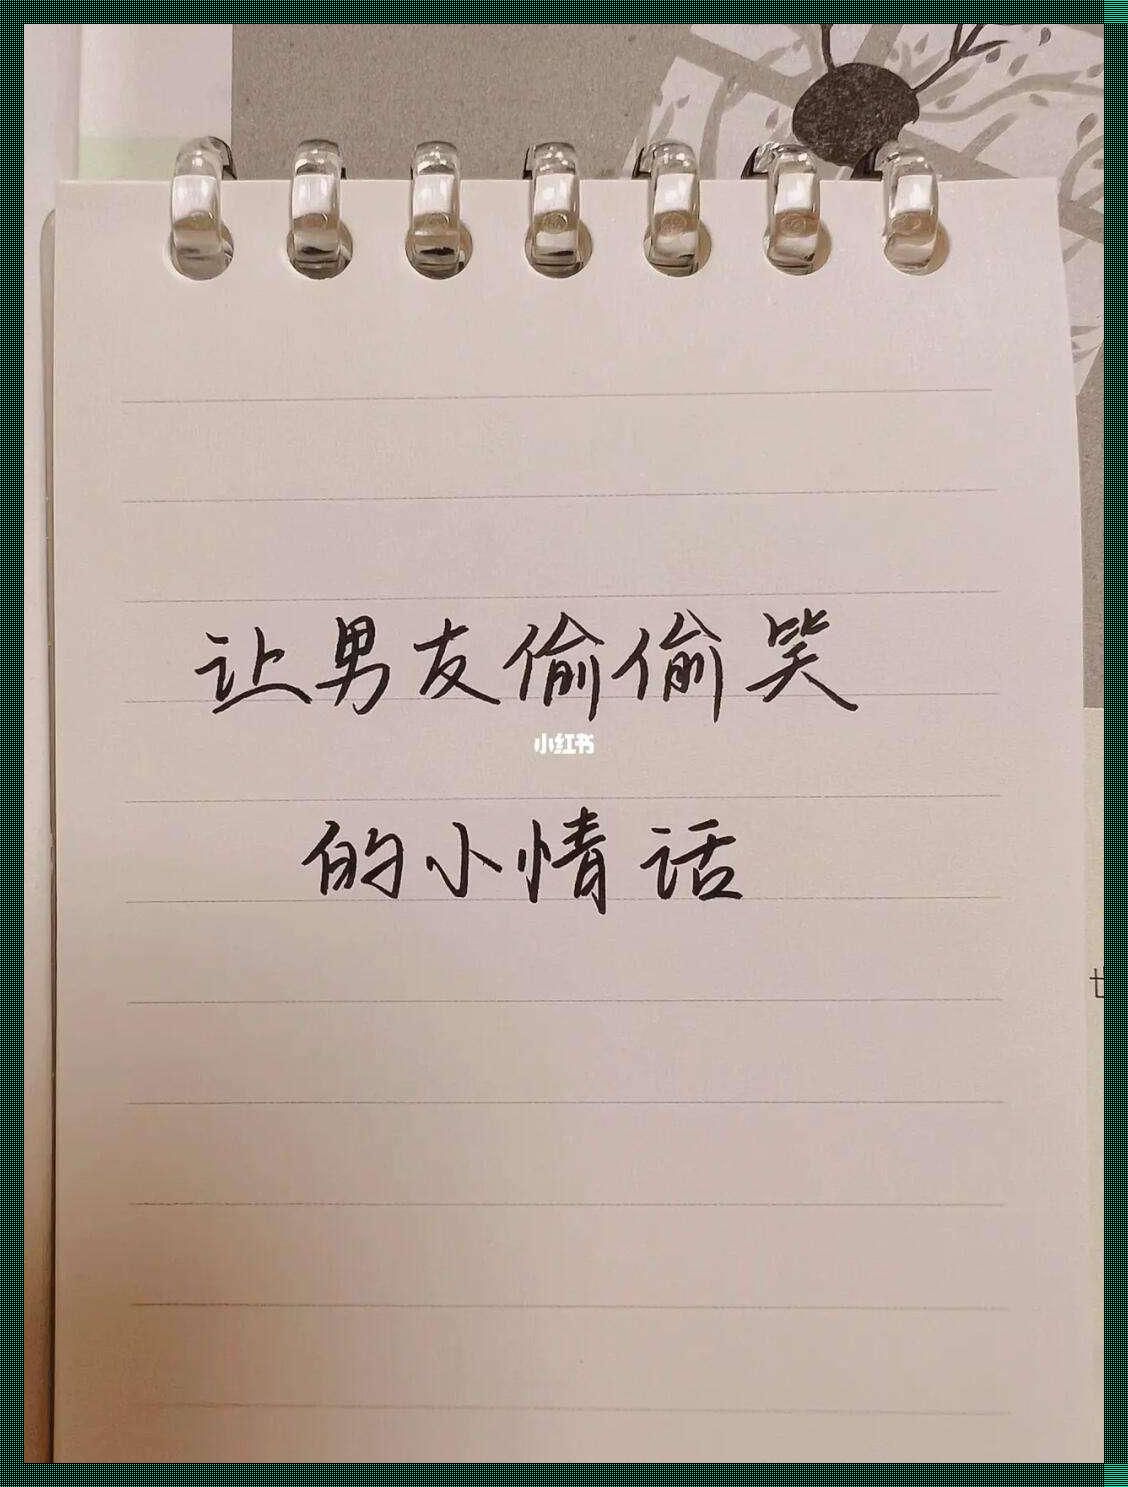 让男友偷偷笑
小红书
的小情话